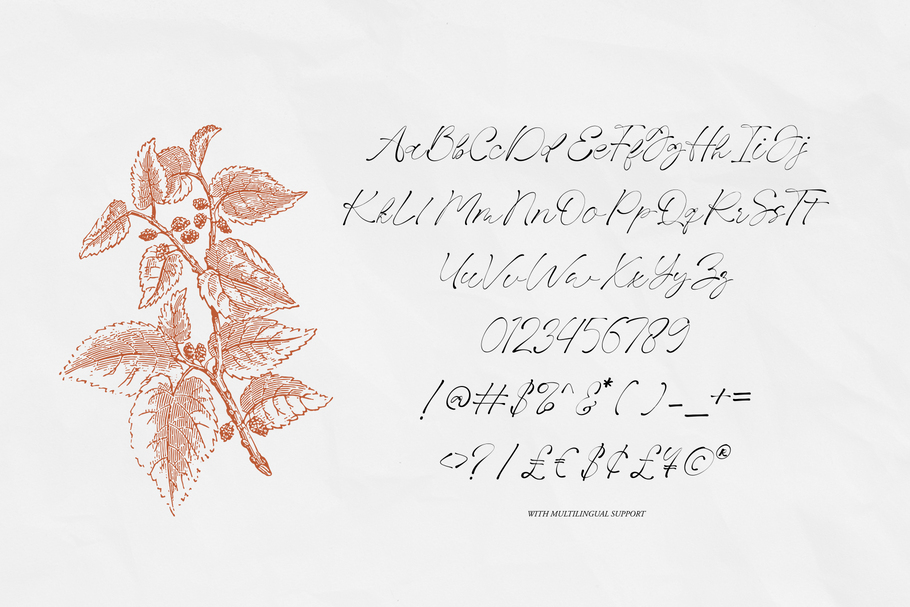 Aa Bb Cc Dd Ee Ff Gg Hh Ii Jj
Kk Ll Mm Nn Oo Pp Qq Rr Ss Tt
Uu Vv Ww Xx Yy Zz
0123456789
!@#$%^&*()-_+=
<>?/£€$¢£¥©®
WITH MULTILINGUAL SUPPORT